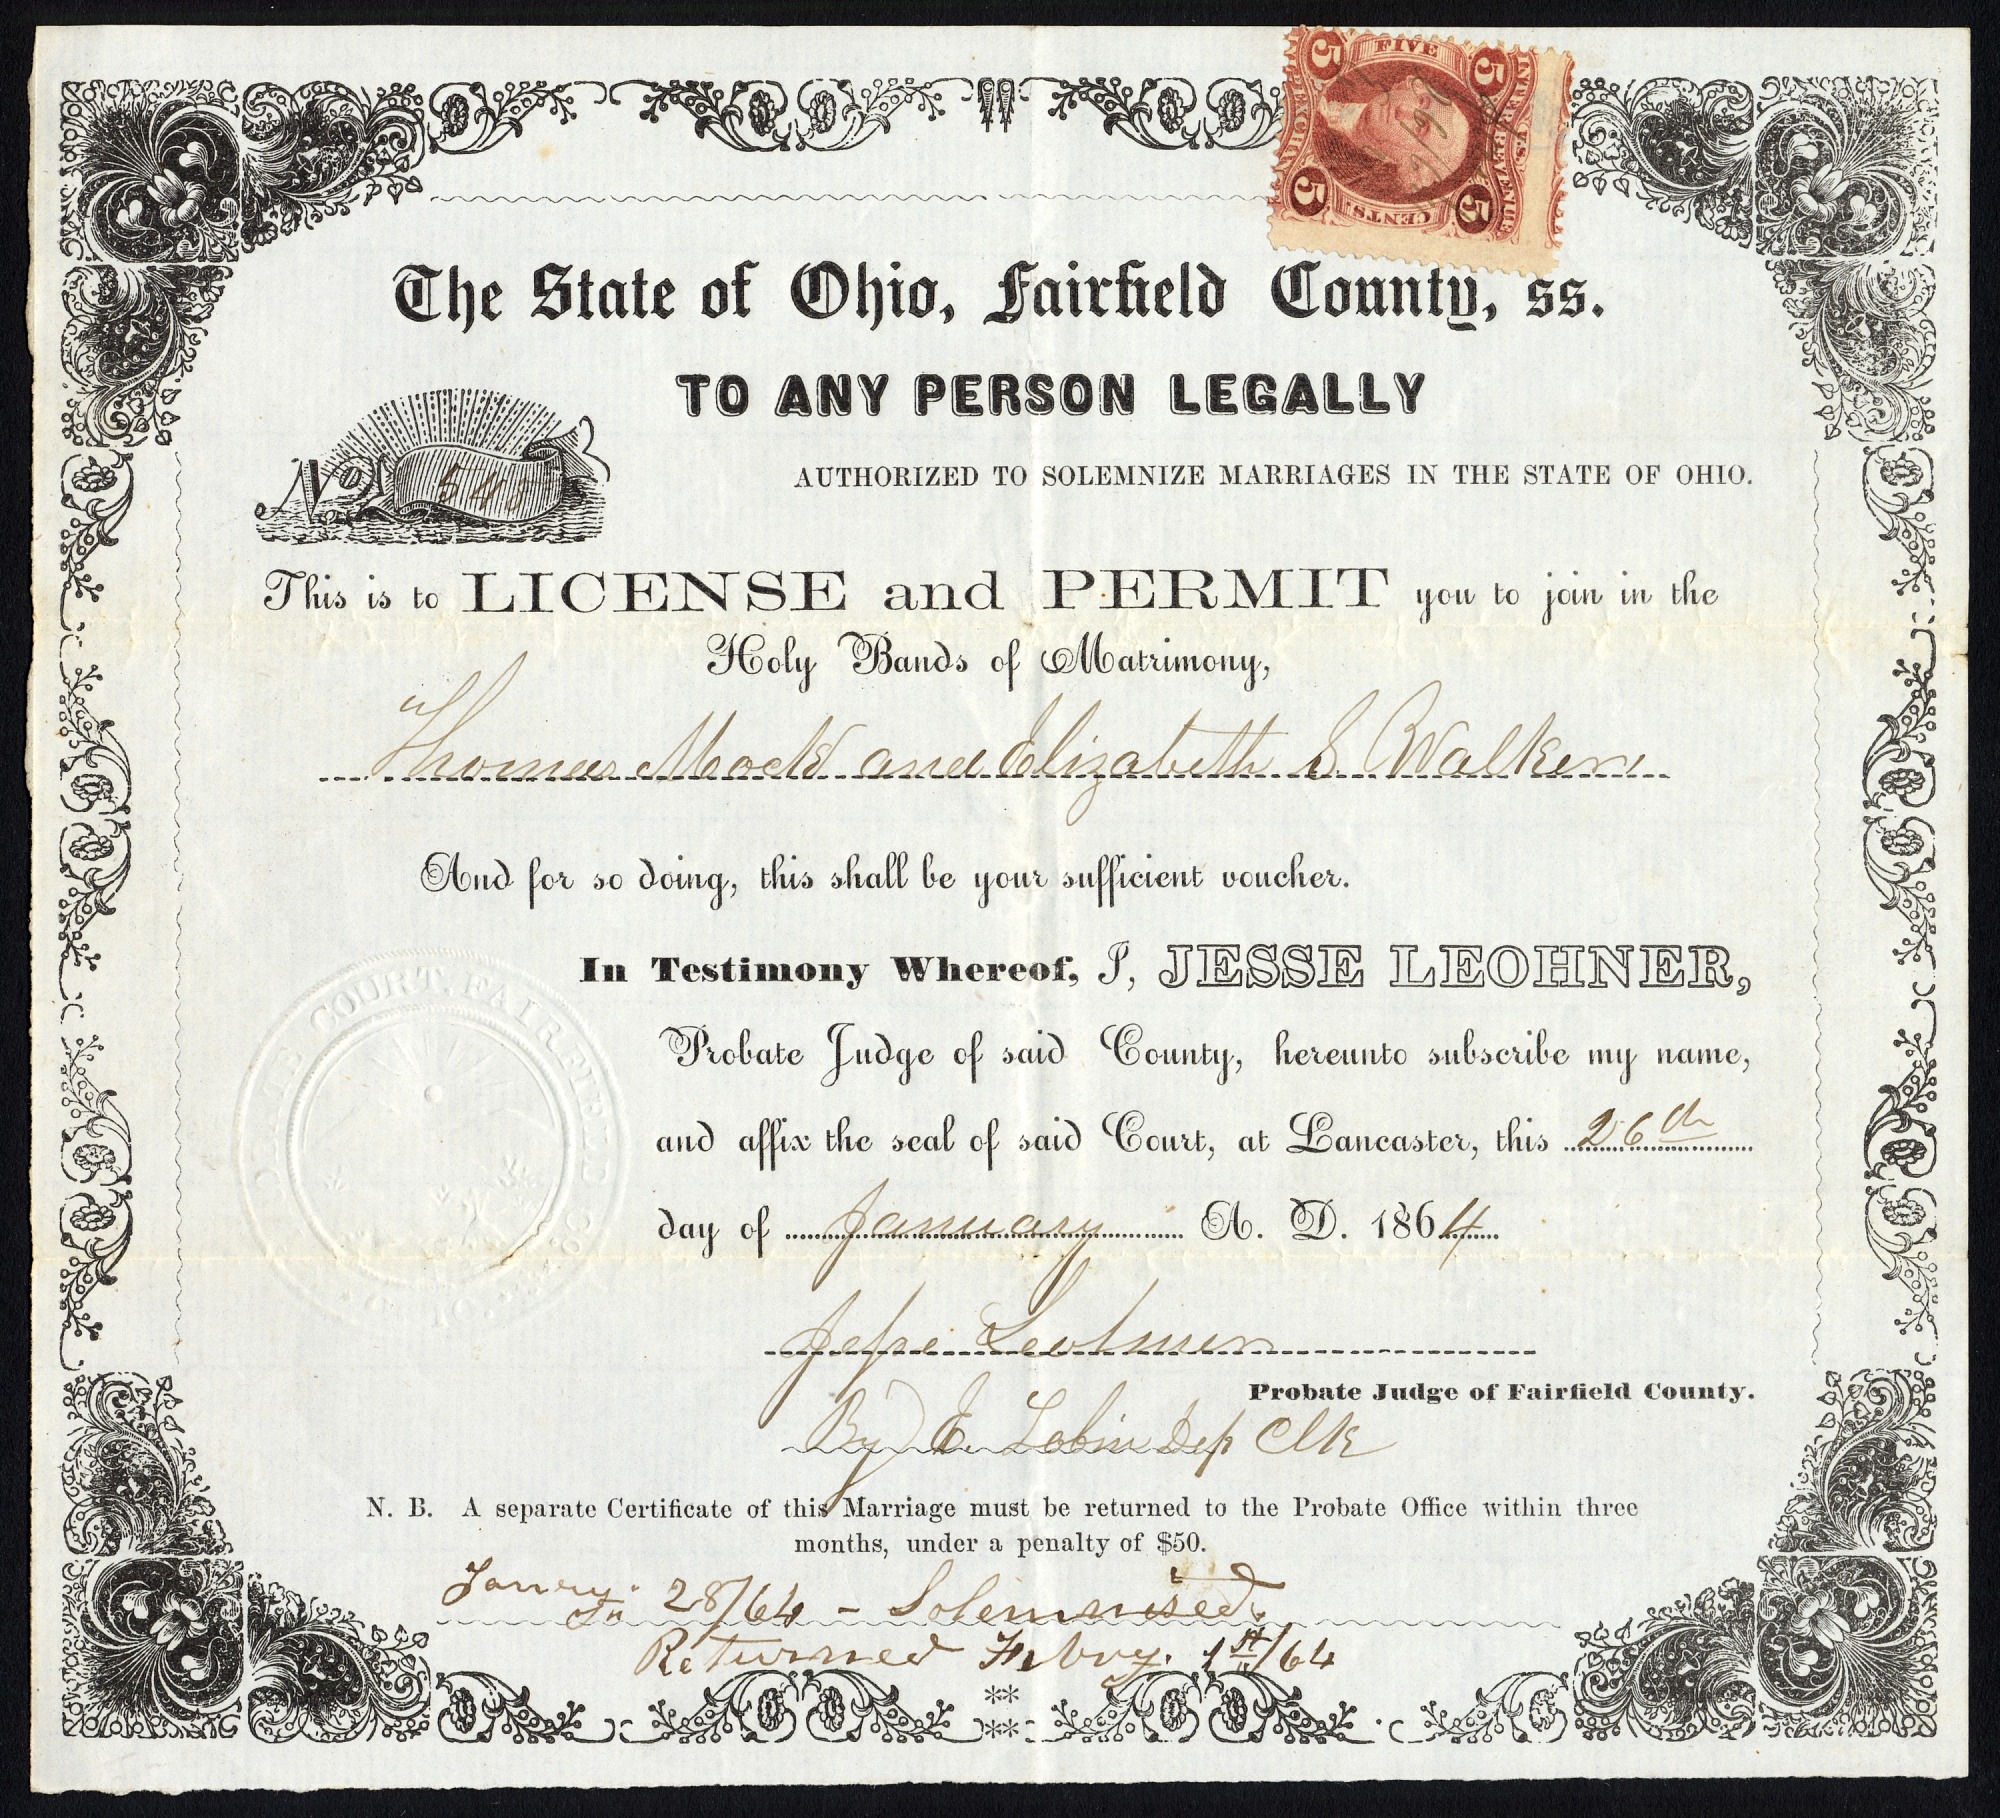 FIVE
5 5
INTER. REVENUE
U.S.
5 CENTS 5
The State of Ohio, Fairfield County, ss.
TO ANY PERSON LEGALLY
AUTHORIZED TO SOLEMNIZE MARRIAGES IN THE STATE OF OHIO.
No. 545
This is to LICENSE and PERMIT you to join in the
Holy Bands of Matrimony,
Thomas Mock and Elizabeth S Walker
And for so doing, this shall be your sufficient voucher.
In Testimony Whereof, I, JESSE LEOHNER,
Probate Judge of said County, hereunto subscribe my name,
and affix the seal of said Court, at Lancaster, this 26th
day of January A. D. 1864
COURT, FAIRFIELD CO.
Jesse Leohner
Probate Judge of Fairfield County.
By E. Lobin Dep Clk
N. B. A separate Certificate of this Marriage must be returned to the Probate Office within three
months, under a penalty of $50.
28/64 - Solemnised
Returned Febry. 1st/64